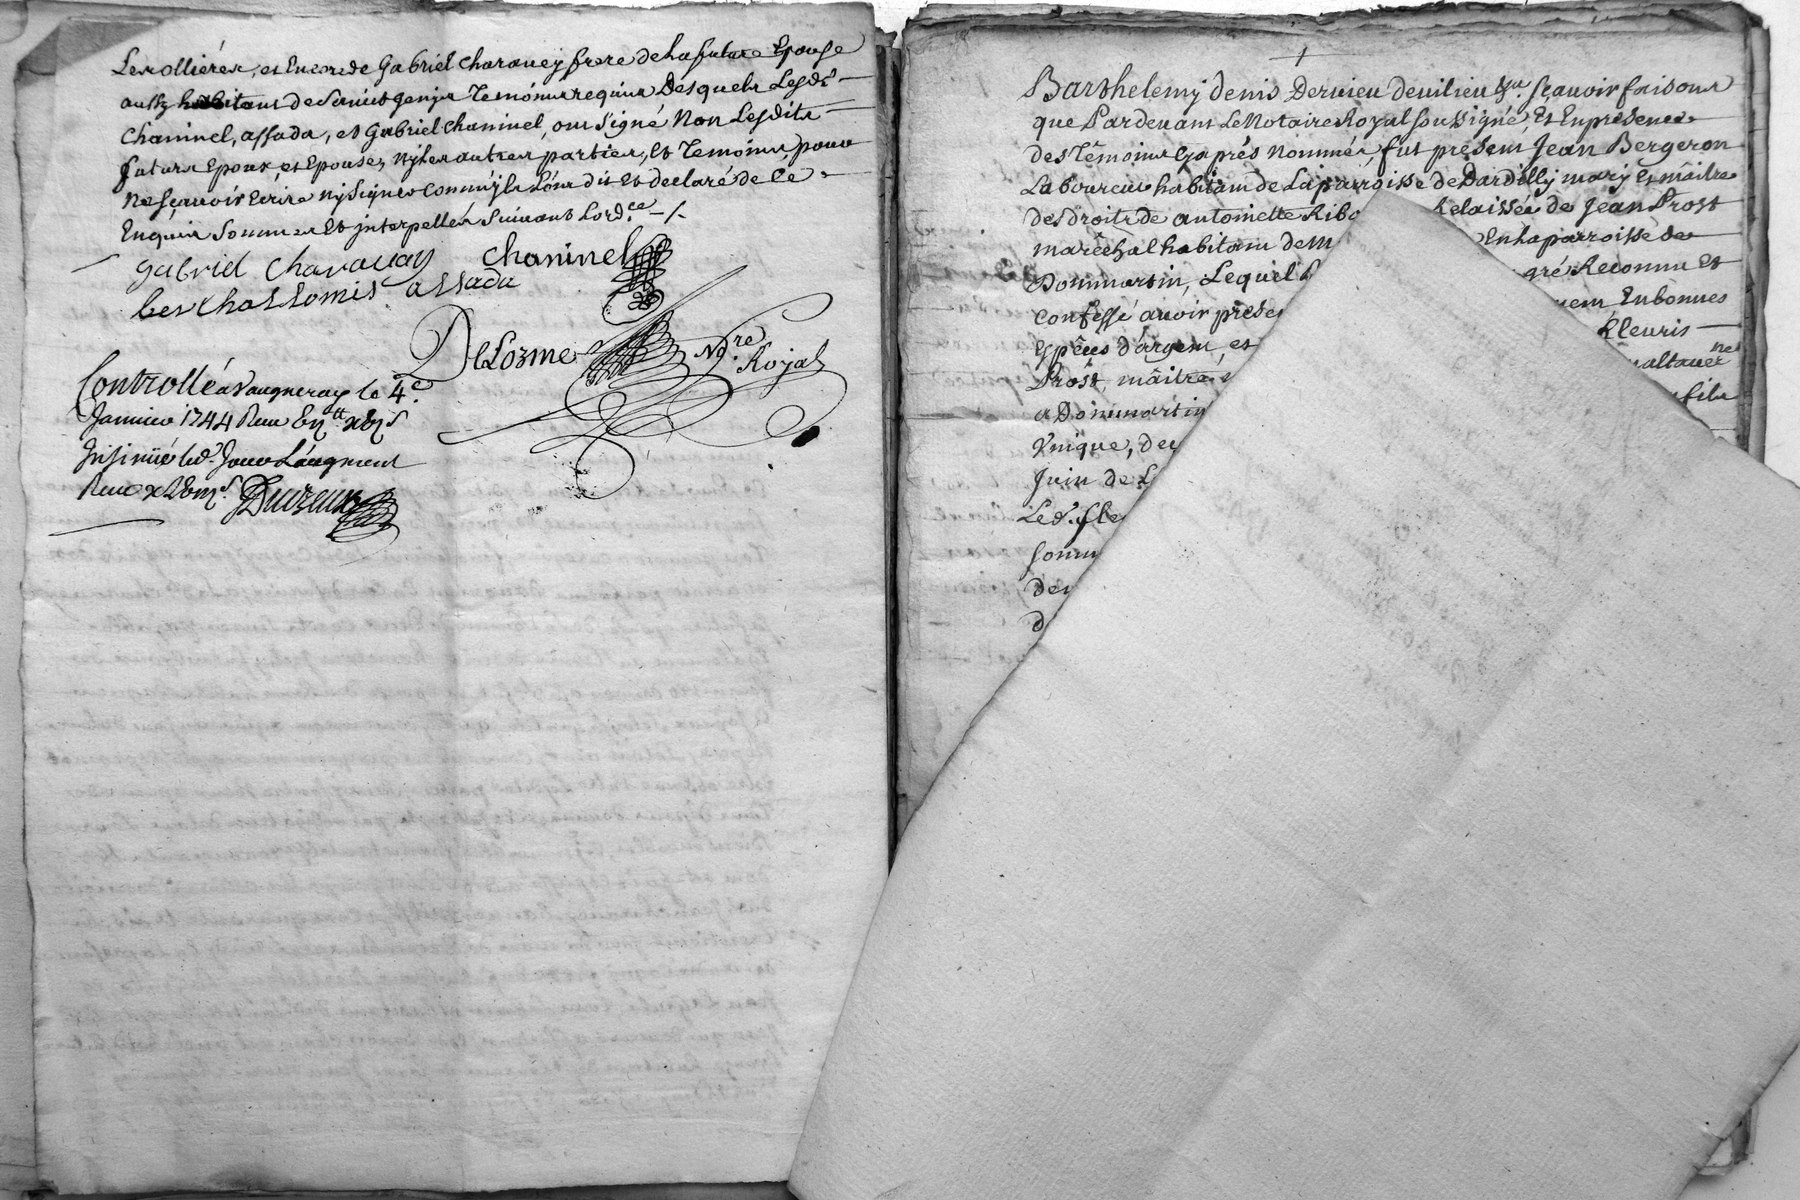 Les ollières, et Encore de Gabriel Charavey frere de la future Epouse
aussy habitant de Temoins requis Desquels Lesds
Chaninel, assada, et Gabriel Chaninel, ont signé Non Lesdits
futurs Epoux, et Epouse, Ny les autres parties, Et Temoins, pour
Ne sçavoir Ecrire Ny Signer Comm'ils L'ont dit Et declaré de Ce
Enquis Sommés Et interpellés Suivant Lord.ce
gabriel Charavay Chaninel
berthollomis assada
DeLorme No.re Royal
Controllé a Vaugneray le 4e
Janvier 1744 Reçu
Insinüé led. Jour
Reçu
Barthelemy denis Dervieu devilieu sçavoir faisons
que Pardevant Le Notaire Royal soussigné, Et En presence
des Têmoins Cy aprés Nommés, fut present Jean Bergeron
Laboureur habitant de La parroisse de Dardilly mary Et mâitre
des droits de antoinette Ribo Relaissée de Jean Prost
marêchal habitant de M En la parroisse de
Dommartin, Lequel gré Reconnu Et
Confessé avoir prese Enbonnes
Espêces d'argent, et fleuris
Prost, mâitre
a Dommartin fils
Vnique, de
Juin de L
Led. fle
somm
de
d